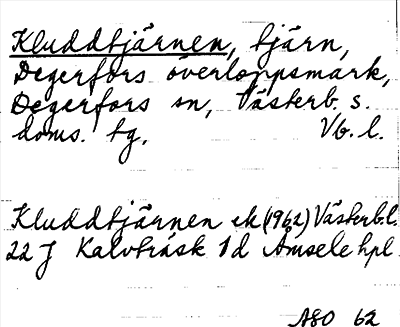 Kluddtjärnen, tjärn,
Degerfors överloppsmark,
Degerfors sn, Västerb. s.
doms. tg, Vb. l.
Kluddtjärnen ek (1962) Västerb l.
22 J Kalvträsk 1 d Åmsele hpl
ASO 62